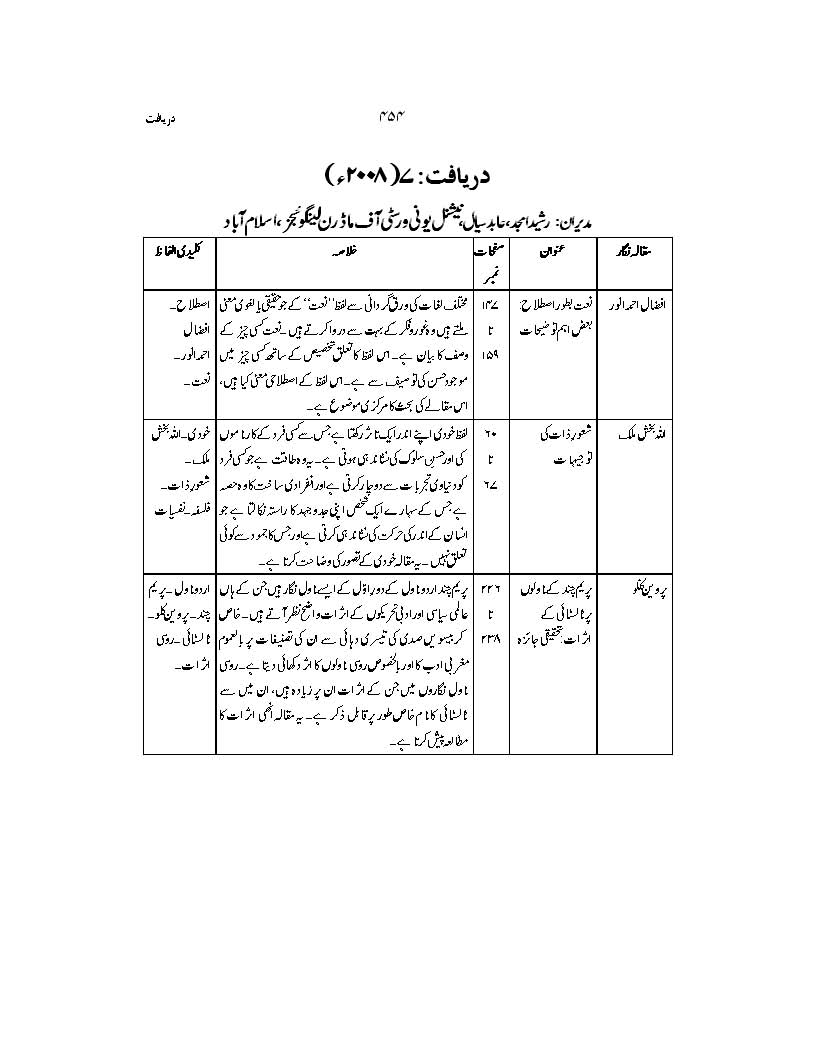 ۴۵۴
دریافت
دریافت: ۷ (۲۰۰۸ء)
مدیران: رشید امجد، عابد سیال، نیشنل یونی ورسٹی آف ماڈرن لینگوئجز، اسلام آباد
مقالہ نگار
عنوان
صفحات
نمبر
خلاصہ
کلیدی الفاظ
افضال احمد انور
نعت بطور اصطلاح:
بعض اہم توضیحات
۱۴۷
تا
۱۵۹
مختلف لغات کی ورق گردانی سے لفظ ’’نعت‘‘ کے جو حقیقی یا لغوی معنی
ملتے ہیں وہ غور و فکر کے بہت سے در وا کرتے ہیں۔ نعت کسی چیز کے
وصف کا بیان ہے۔ اس لفظ کا تعلق تخصیص کے ساتھ کسی چیز میں
موجود حسن کی توصیف سے ہے۔ اس لفظ کے اصطلاحی معنی کیا ہیں،
اس مقالے کی بحث کا مرکزی موضوع ہے۔
اصطلاح۔
افضال
احمد انور۔
نعت۔
اللہ بخش ملک
شعورِ ذات کی
توجیہات
۶۰
تا
۶۷
لفظ خودی اپنے اندر ایک تاثر رکھتا ہے جس سے کسی فرد کے کارناموں
کی اور حسنِ سلوک کی نشاندہی ہوتی ہے۔ یہ وہ طاقت ہے جو کسی فرد
کو دنیاوی تجربات سے دوچار کرتی ہے اور انفرادی ساخت کا وہ حصہ
ہے جس کے سہارے ایک شخص اپنی جدوجہد کا راستہ نکالتا ہے جو
انسان کے اندر کی حرکت کی نشاندہی کرتی ہے اور جس کا جمود سے کوئی
تعلق نہیں۔ یہ مقالہ خودی کے تصور کی وضاحت کرتا ہے۔
خودی۔ اللہ بخش
ملک۔
شعورِ ذات۔
فلسفہ۔ نفسیات
پروین کلو
پریم چند کے ناولوں
پر ٹالسٹائی کے
اثرات: تحقیقی جائزہ
۲۲۶
تا
۲۳۸
پریم چند اردو ناول کے دورِ اوّل کے ایسے ناول نگار ہیں جن کے ہاں
عالمی سیاسی اور ادبی تحریکوں کے اثرات واضح نظر آتے ہیں۔ خاص
کر بیسویں صدی کی تیسری دہائی سے ان کی تصنیفات پر بالعموم
مغربی ادب کا اور بالخصوص روسی ناولوں کا اثر دکھائی دیتا ہے۔ روسی
ناول نگاروں میں جن کے اثرات ان پر زیادہ ہیں، ان میں سے
ٹالسٹائی کا نام خاص طور پر قابل ذکر ہے۔ یہ مقالہ انھی اثرات کا
مطالعہ پیش کرتا ہے۔
اردو ناول۔ پریم
چند۔ پروین کلو۔
ٹالسٹائی۔ روسی
اثرات۔